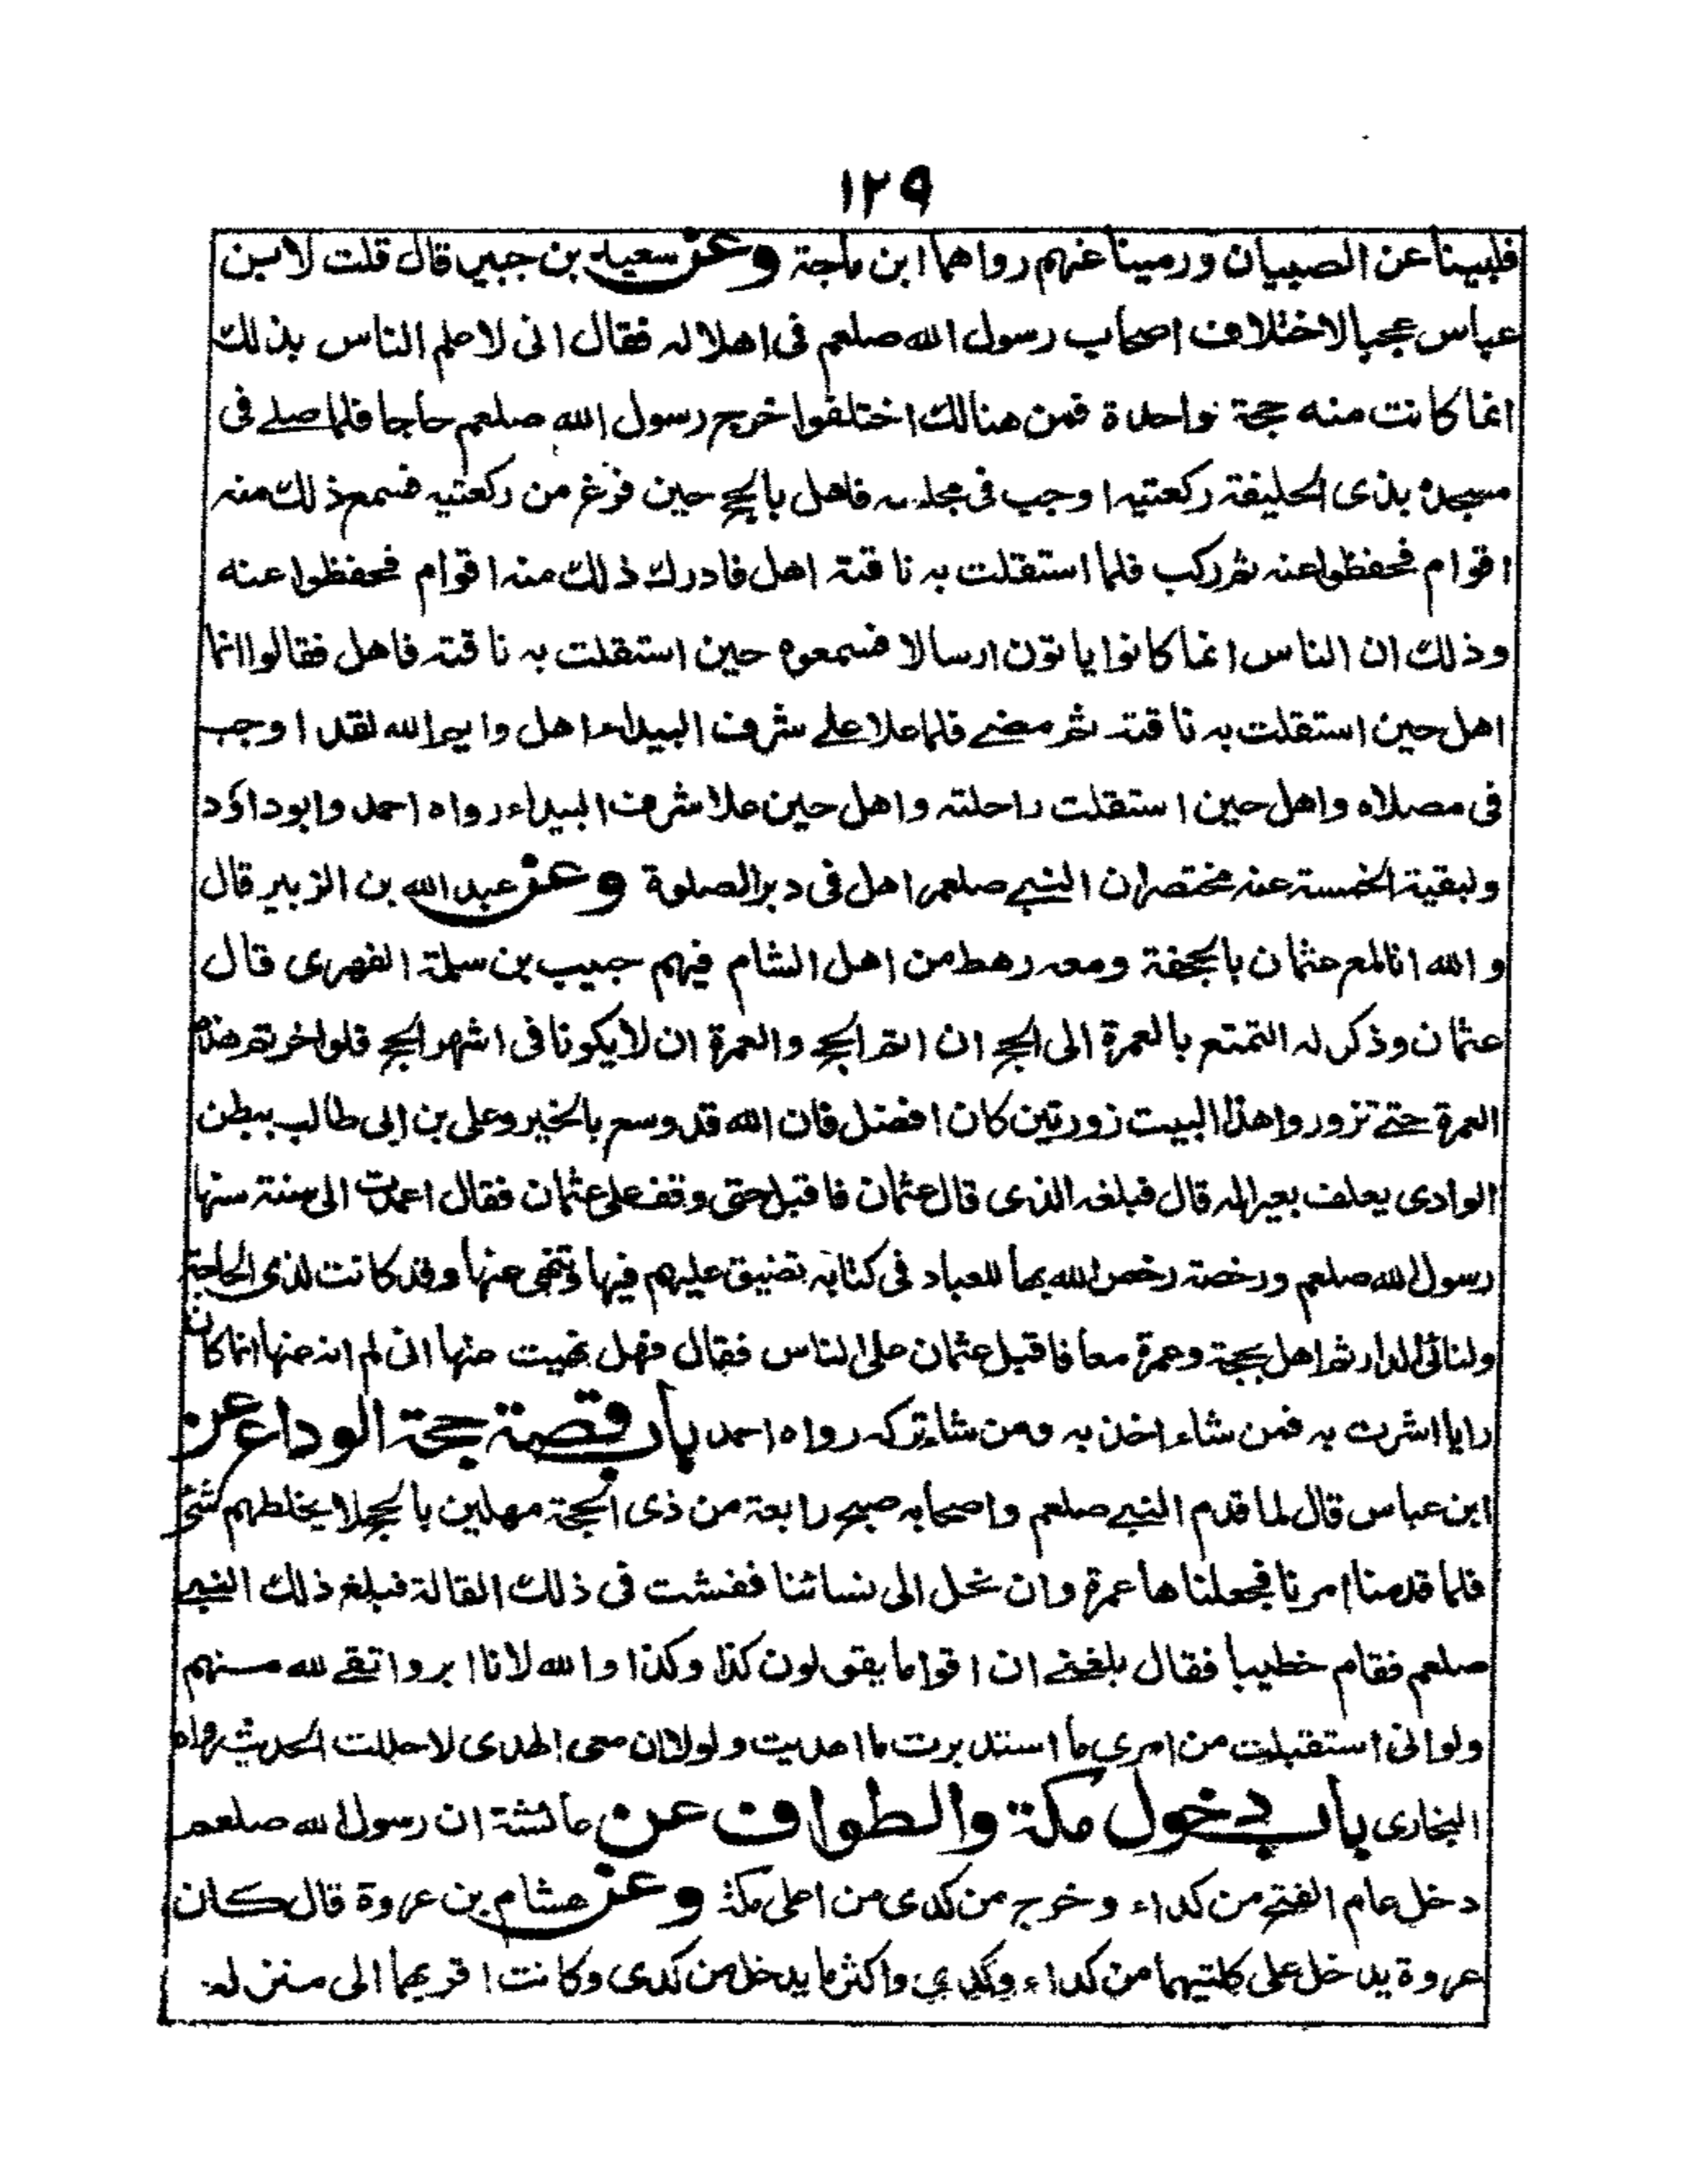 ١٢٩
فلبينا عن الصبيان ورمينا عنهم رواهما ابن ماجة وعن سعيد بن جبير قال قلت لابن
عباس عجبا لاختلاف اصحاب رسول الله صلعم فى اهلاله فقال انى لاعلم الناس بذلك
انما كانت منه حجة واحدة فمن هنالك اختلفوا خرج رسول الله صلعم حاجا فلما صلے فى
مسجده بذى الحليفة ركعتيه اوجب فى مجلسه فاهل بالحج حين فرغ من ركعتيه فسمع ذلك منه
اقوام فحفظوا عنه ثم ركب فلما استقلت به ناقته اهل فادرك ذلك منه اقوام فحفظوا عنه
وذلك ان الناس انما كانوا ياتون ارسالا فسمعوه حين استقلت به ناقته فاهل فقالوا انما
اهل حين استقلت به ناقته ثم مضے فلما علا علے شرف البيداء اهل وايم الله لقد اوجب
فى مصلاه واهل حين استقلت راحلته واهل حين علا شرف البيداء رواه احمد وابوداؤد
ولبقية الخمسة عنه مختصرا ان النبے صلعم اهل فى دبر الصلوة وعن عبد الله بن الزبير قال
والله انا لمع عثمان بالجحفة ومعه رهط من اهل الشام فيهم حبيب بن سلمة الفهرى قال
عثمان وذكر له التمتع بالعمرة الى الحج ان اتم الحج والعمرة ان لا يكونا فى اشهر الحج فلو اخرتم هذه
العمرة حتے تزوروا هذا البيت زورتين كان افضل فان الله قد وسع بالخير وعلى بن ابى طالب ببطن
الوادى يعلف بعيرا له قال فبلغه الذى قال عثمان فاقبل حتى وقف على عثمان فقال اعمدت الى سنة سنها
رسول الله صلعم ورخصة رخص الله بها للعباد فى كتابه تضيق عليهم فيها وتنهى عنها وقد كانت لذى الحاجة
ولنائى الدار ثم اهل بحجة وعمرة معا فاقبل عثمان على الناس فقال فهل نهيت عنها انى لم انه عنها انما كان
رايا اشرت به فمن شاء اخذ به ومن شاء تركه رواه احمد باب قصة حجة الوداع عن
ابن عباس قال لما قدم النبے صلعم واصحابه صبح رابعة من ذى الحجة مهلين بالحج لا يخلطهم شئ
فلما قدمنا امرنا فجعلناها عمرة وان نحل الى نسائنا ففشت فى ذلك القالة فبلغ ذلك النبے
صلعم فقام خطيبا فقال بلغنے ان اقواما يقولون كذا وكذا والله لانا ابر واتقے لله منهم
ولو انى استقبلت من امرى ما استدبرت ما اهديت ولولا ان معى الهدى لاحللت الحديث رواه
البخارى باب دخول مكة والطواف عن عائشة ان رسول الله صلعم
دخل عام الفتح من كداء وخرج من كدى من اعلى مكة وعن هشام بن عروة قال كان
عروة يدخل على كلتيهما من كداء وكدى واكثر ما يدخل من كدى وكانت اقربهما الى منزله